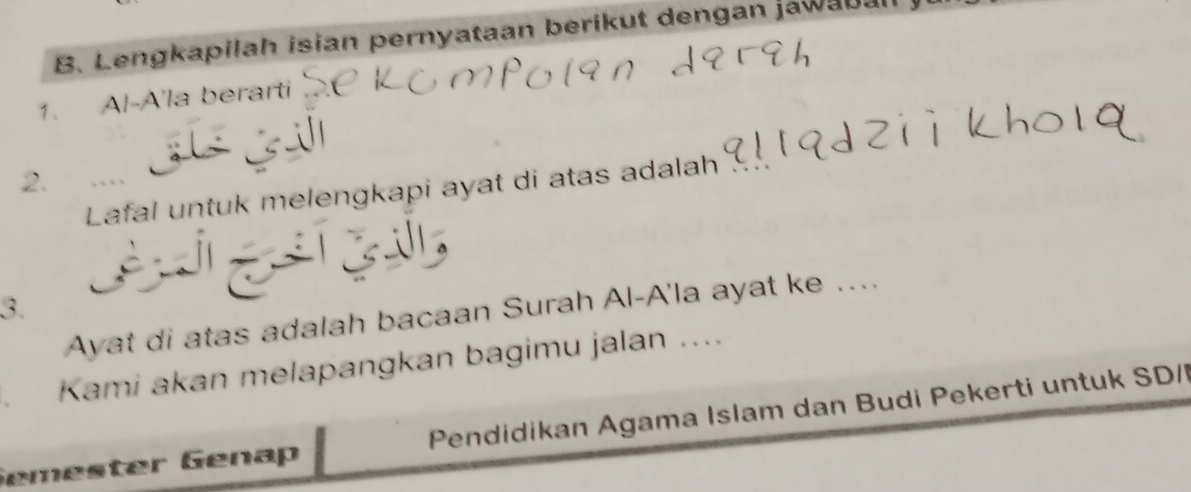 B. Lengkapilah isian pernyataan berikut dengan jawaban
1. Al-A'la berarti ... Sekompolan darah
2. .... الَّذِيْ خَلَقَ
Lafal untuk melengkapi ayat di atas adalah .... alladzii khola
3. وَالَّذِيْٓ اَخْرَجَ الْمَرْعٰى
Ayat di atas adalah bacaan Surah Al-A'la ayat ke ....
Kami akan melapangkan bagimu jalan ....
Semester Genap
Pendidikan Agama Islam dan Budi Pekerti untuk SD/